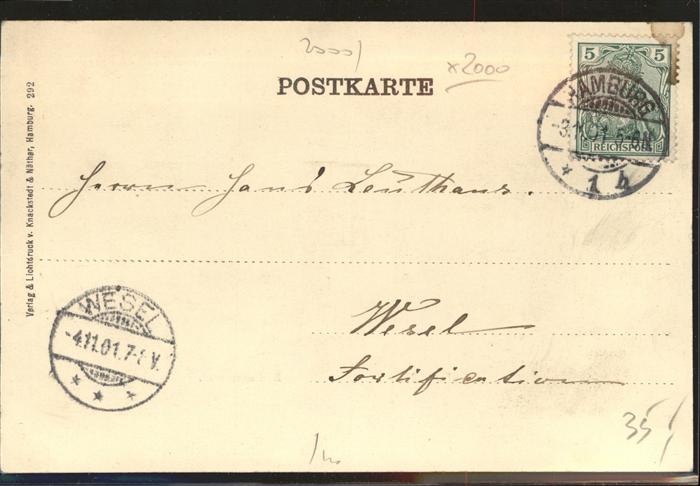 2000
x2000
POSTKARTE
5 5
REICHSPOST
HAMBURG
1 b
Verlag & Lichtdruck v. Knackstedt & Näther, Hamburg. 292
Herrn Hans Leuthaus.
WESEL
-4.11.01.7-8 V.
Wesel
Fortification
35